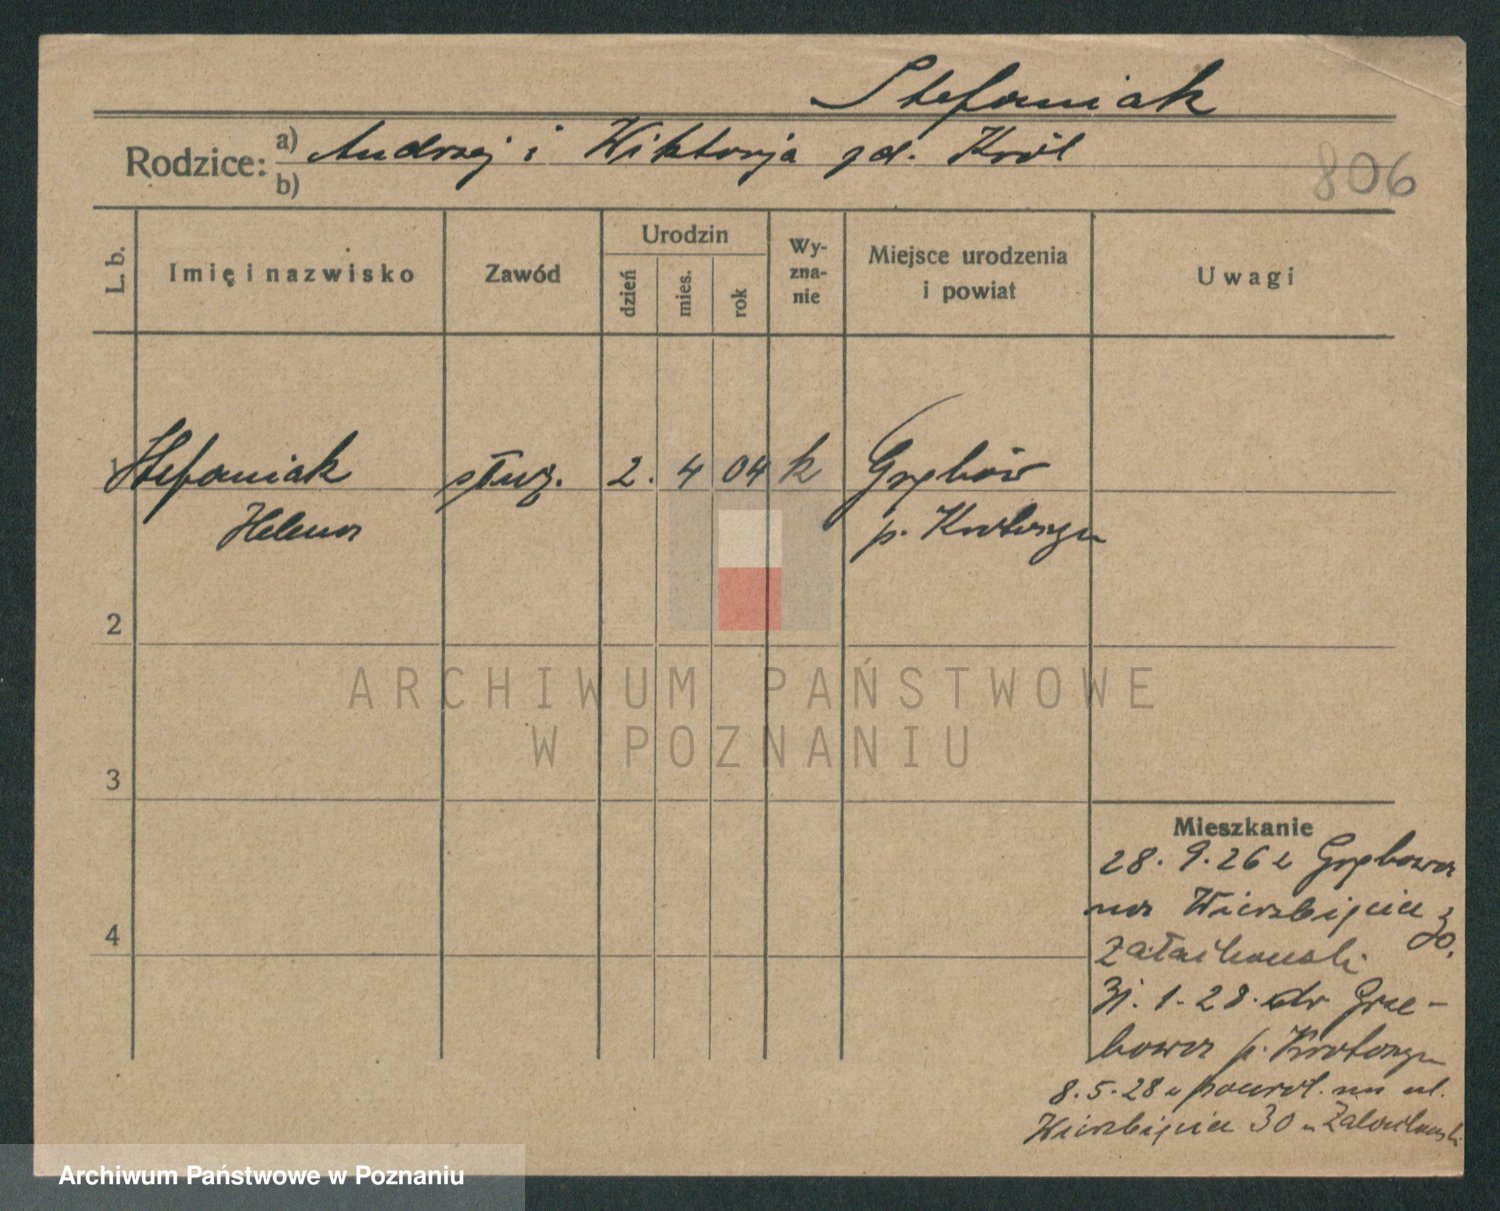 Stefaniak
Rodzice: a) Andrzej i Wiktorja zd. Król
b)
806
L. b.
Imię i nazwisko
Zawód
Urodzin
dzień
mies.
rok
Wy-
zna-
nie
Miejsce urodzenia
i powiat
Uwagi
Stefaniak służ. 2. 4 04 k Grębów
Helena p. Krotoszyn
2
3
4
ARCHIWUM PAŃSTWOWE
W POZNANIU
Mieszkanie
28. 9. 26 z Grębowa
na Wierzbięcice 30.
31. 1. 28. do Grze-
bowa p. Krotoszyn
8. 5. 28 powrót. na ul.
Wierzbięcice 30 u
Archiwum Państwowe w Poznaniu